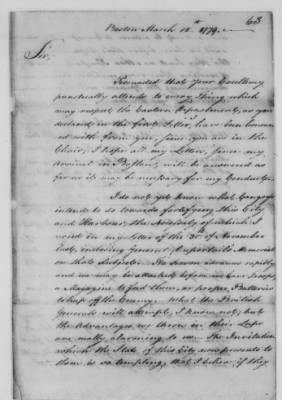 63
Boston March 10th 1779.
Sir,
Perswaded that your Excellency
punctually attends to every thing which
may respect the Eastern Department, as you
declared in the first Letter, I have been honour
ed with from you, since you are in the
Chair, I hope all my Letters, since my
arrival in Boston, will be answered as
far as it may be necessary for my Conduct.
I do not yet know what Congress
intends to do towards fortifying this City
and Harbour, the necessity of which I
wrote in my letter of the 30th of November
last, inclosing General Duportail's Memorial
on that Subject. The Season advances rapidly
and we may be attacked before we have Troops
a Magazine to feed them, or proper Batteries
to keep off the Enemy. What the British
Generals will attempt, I know not; but
the Advantages we throw in their Laps
are really alarming to me. The Invitation
which the State of this City
them is so tempting, that I believe if they